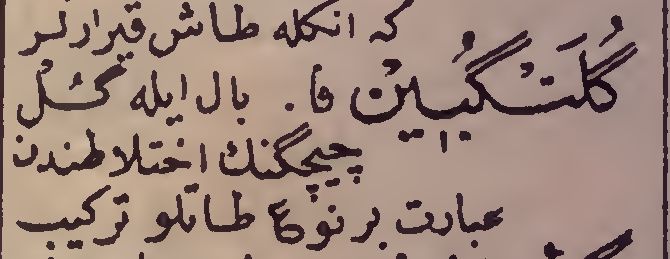 که انکله طاش قیرارلر
گُلَنْگُبِینْ فا. بال ایله گُل
چیچگنڭ اختلاطندن
عبارت بر نوع طاتلو ترکیب